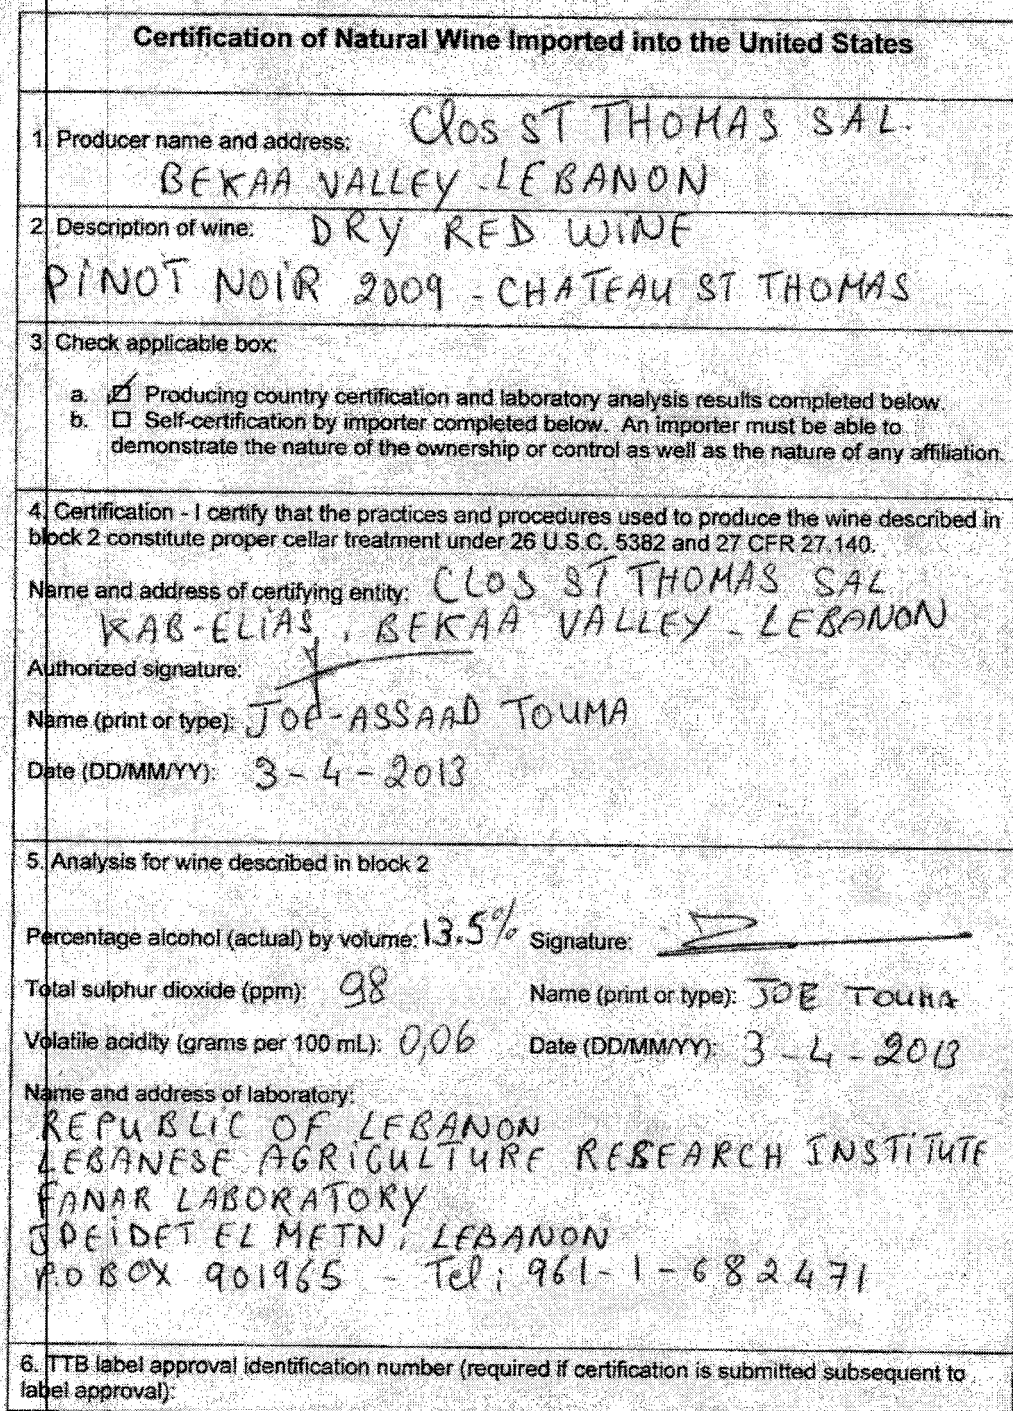 Certification of Natural Wine Imported into the United States
1. Producer name and address: Clos ST THOMAS SAL.
BEKAA VALLEY - LEBANON
2. Description of wine: DRY RED WINE
PINOT NOIR 2009 - CHATEAU ST THOMAS
3. Check applicable box:
a. ☑ Producing country certification and laboratory analysis results completed below.
b. ☐ Self-certification by importer completed below. An importer must be able to
demonstrate the nature of the ownership or control as well as the nature of any affiliation.
4. Certification - I certify that the practices and procedures used to produce the wine described in
block 2 constitute proper cellar treatment under 26 U.S.C. 5382 and 27 CFR 27.140.
Name and address of certifying entity: CLOS ST THOMAS SAL
KAB-ELIAS, BEKAA VALLEY - LEBANON
Authorized signature:
Name (print or type): JOE-ASSAAD TOUMA
Date (DD/MM/YY): 3-4-2013
5. Analysis for wine described in block 2
Percentage alcohol (actual) by volume: 13.5% Signature:
Total sulphur dioxide (ppm): 98 Name (print or type): JOE TOUMA
Volatile acidity (grams per 100 mL): 0,06 Date (DD/MM/YY): 3-4-2013
Name and address of laboratory:
REPUBLIC OF LEBANON
LEBANESE AGRICULTURE RESEARCH INSTITUTE
FANAR LABORATORY
JDEIDET EL METN, LEBANON
P.O BOX 901965 - Tel: 961-1-682471
6. TTB label approval identification number (required if certification is submitted subsequent to
label approval):